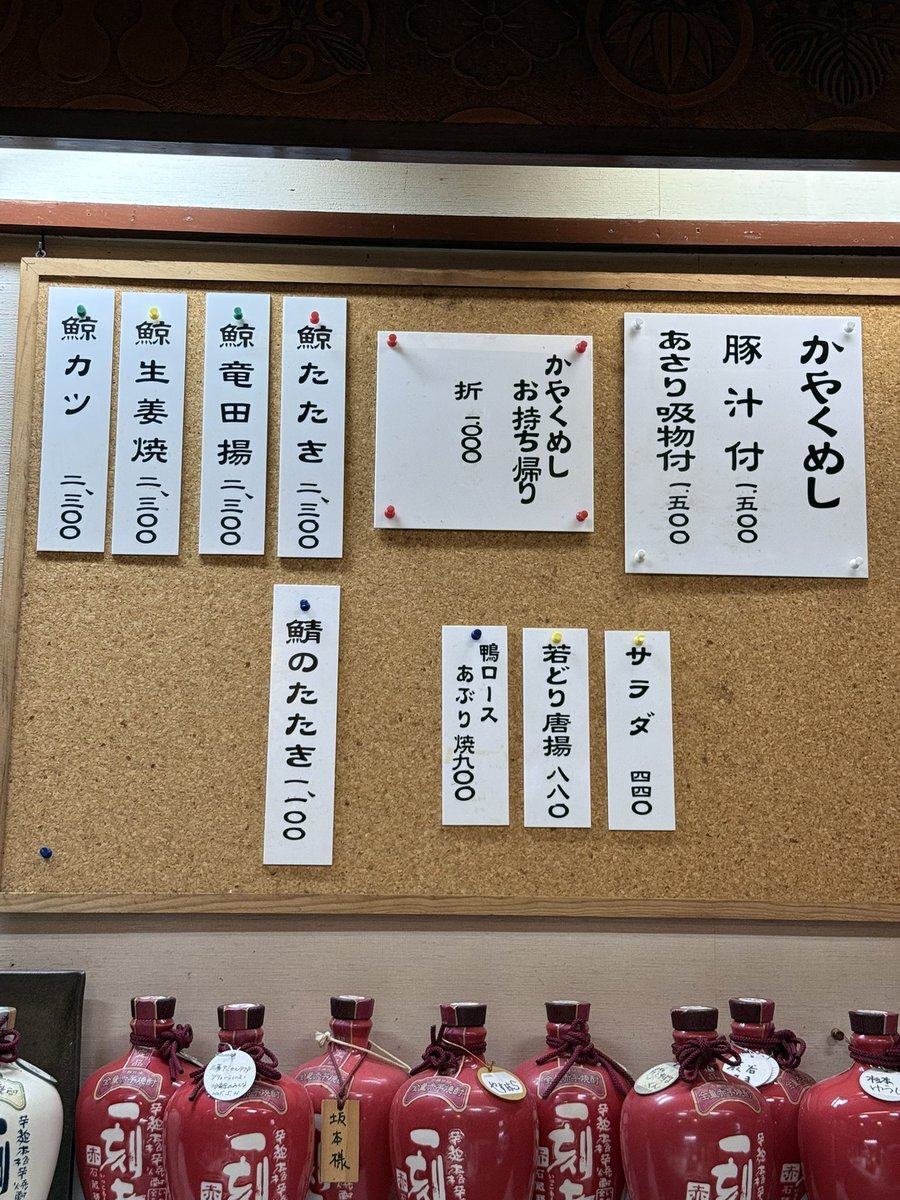 かやくめし
豚汁付 一、五〇〇
あさり吸物付 一、五〇〇
かやくめし
お持ち帰り
折 一、〇〇〇
鯨たたき 二、三〇〇
鯨竜田揚 二、三〇〇
鯨生姜焼 二、三〇〇
鯨カツ 二、三〇〇
サラダ 四四〇
若どり唐揚 八八〇
鴨ロース
あぶり焼 九〇〇
鯖のたたき 一、一〇〇
坂本様
一刻
一刻
一刻
一刻
一刻
赤
赤
赤
赤